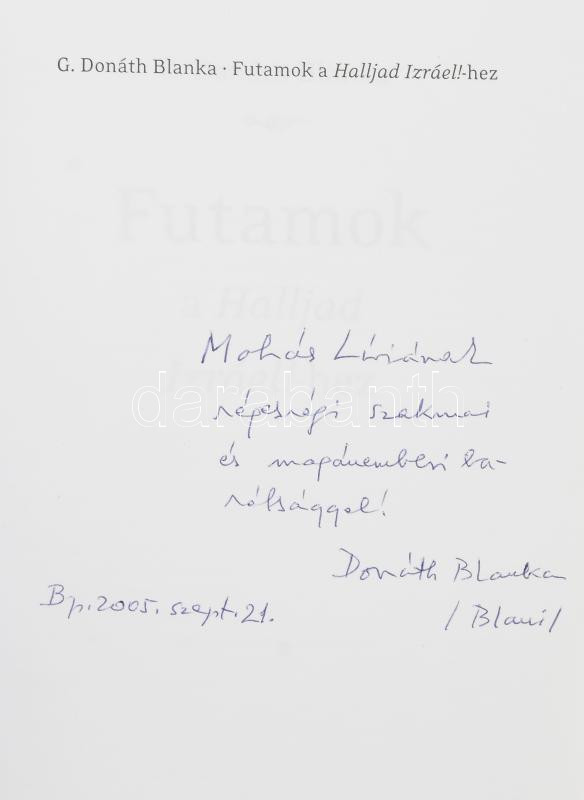 G. Donáth Blanka · Futamok a Halljad Izráel!-hez
Futamok
a Halljad
Izráel!-hez
Mohás Líviának
darabanth
régesrégi szakmai
és magánemberi ba-
rátsággal!
Donáth Blanka
/ Blani /
Bp. 2005. szept. 21.